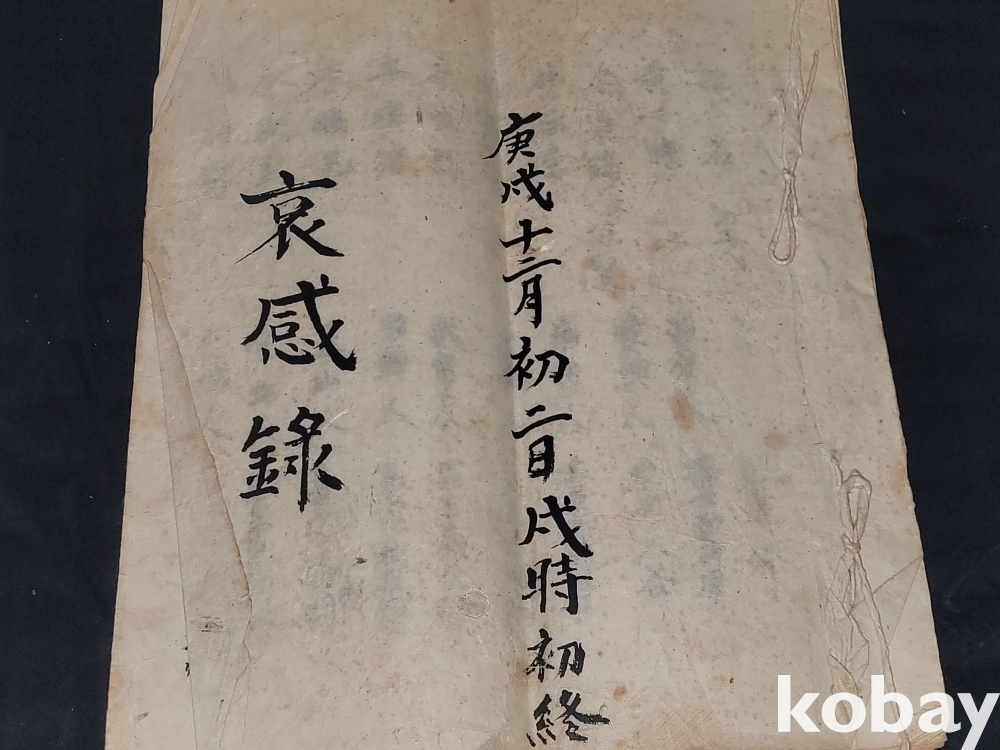 庚戌十二月初二日戌時初終
哀感錄
kobay